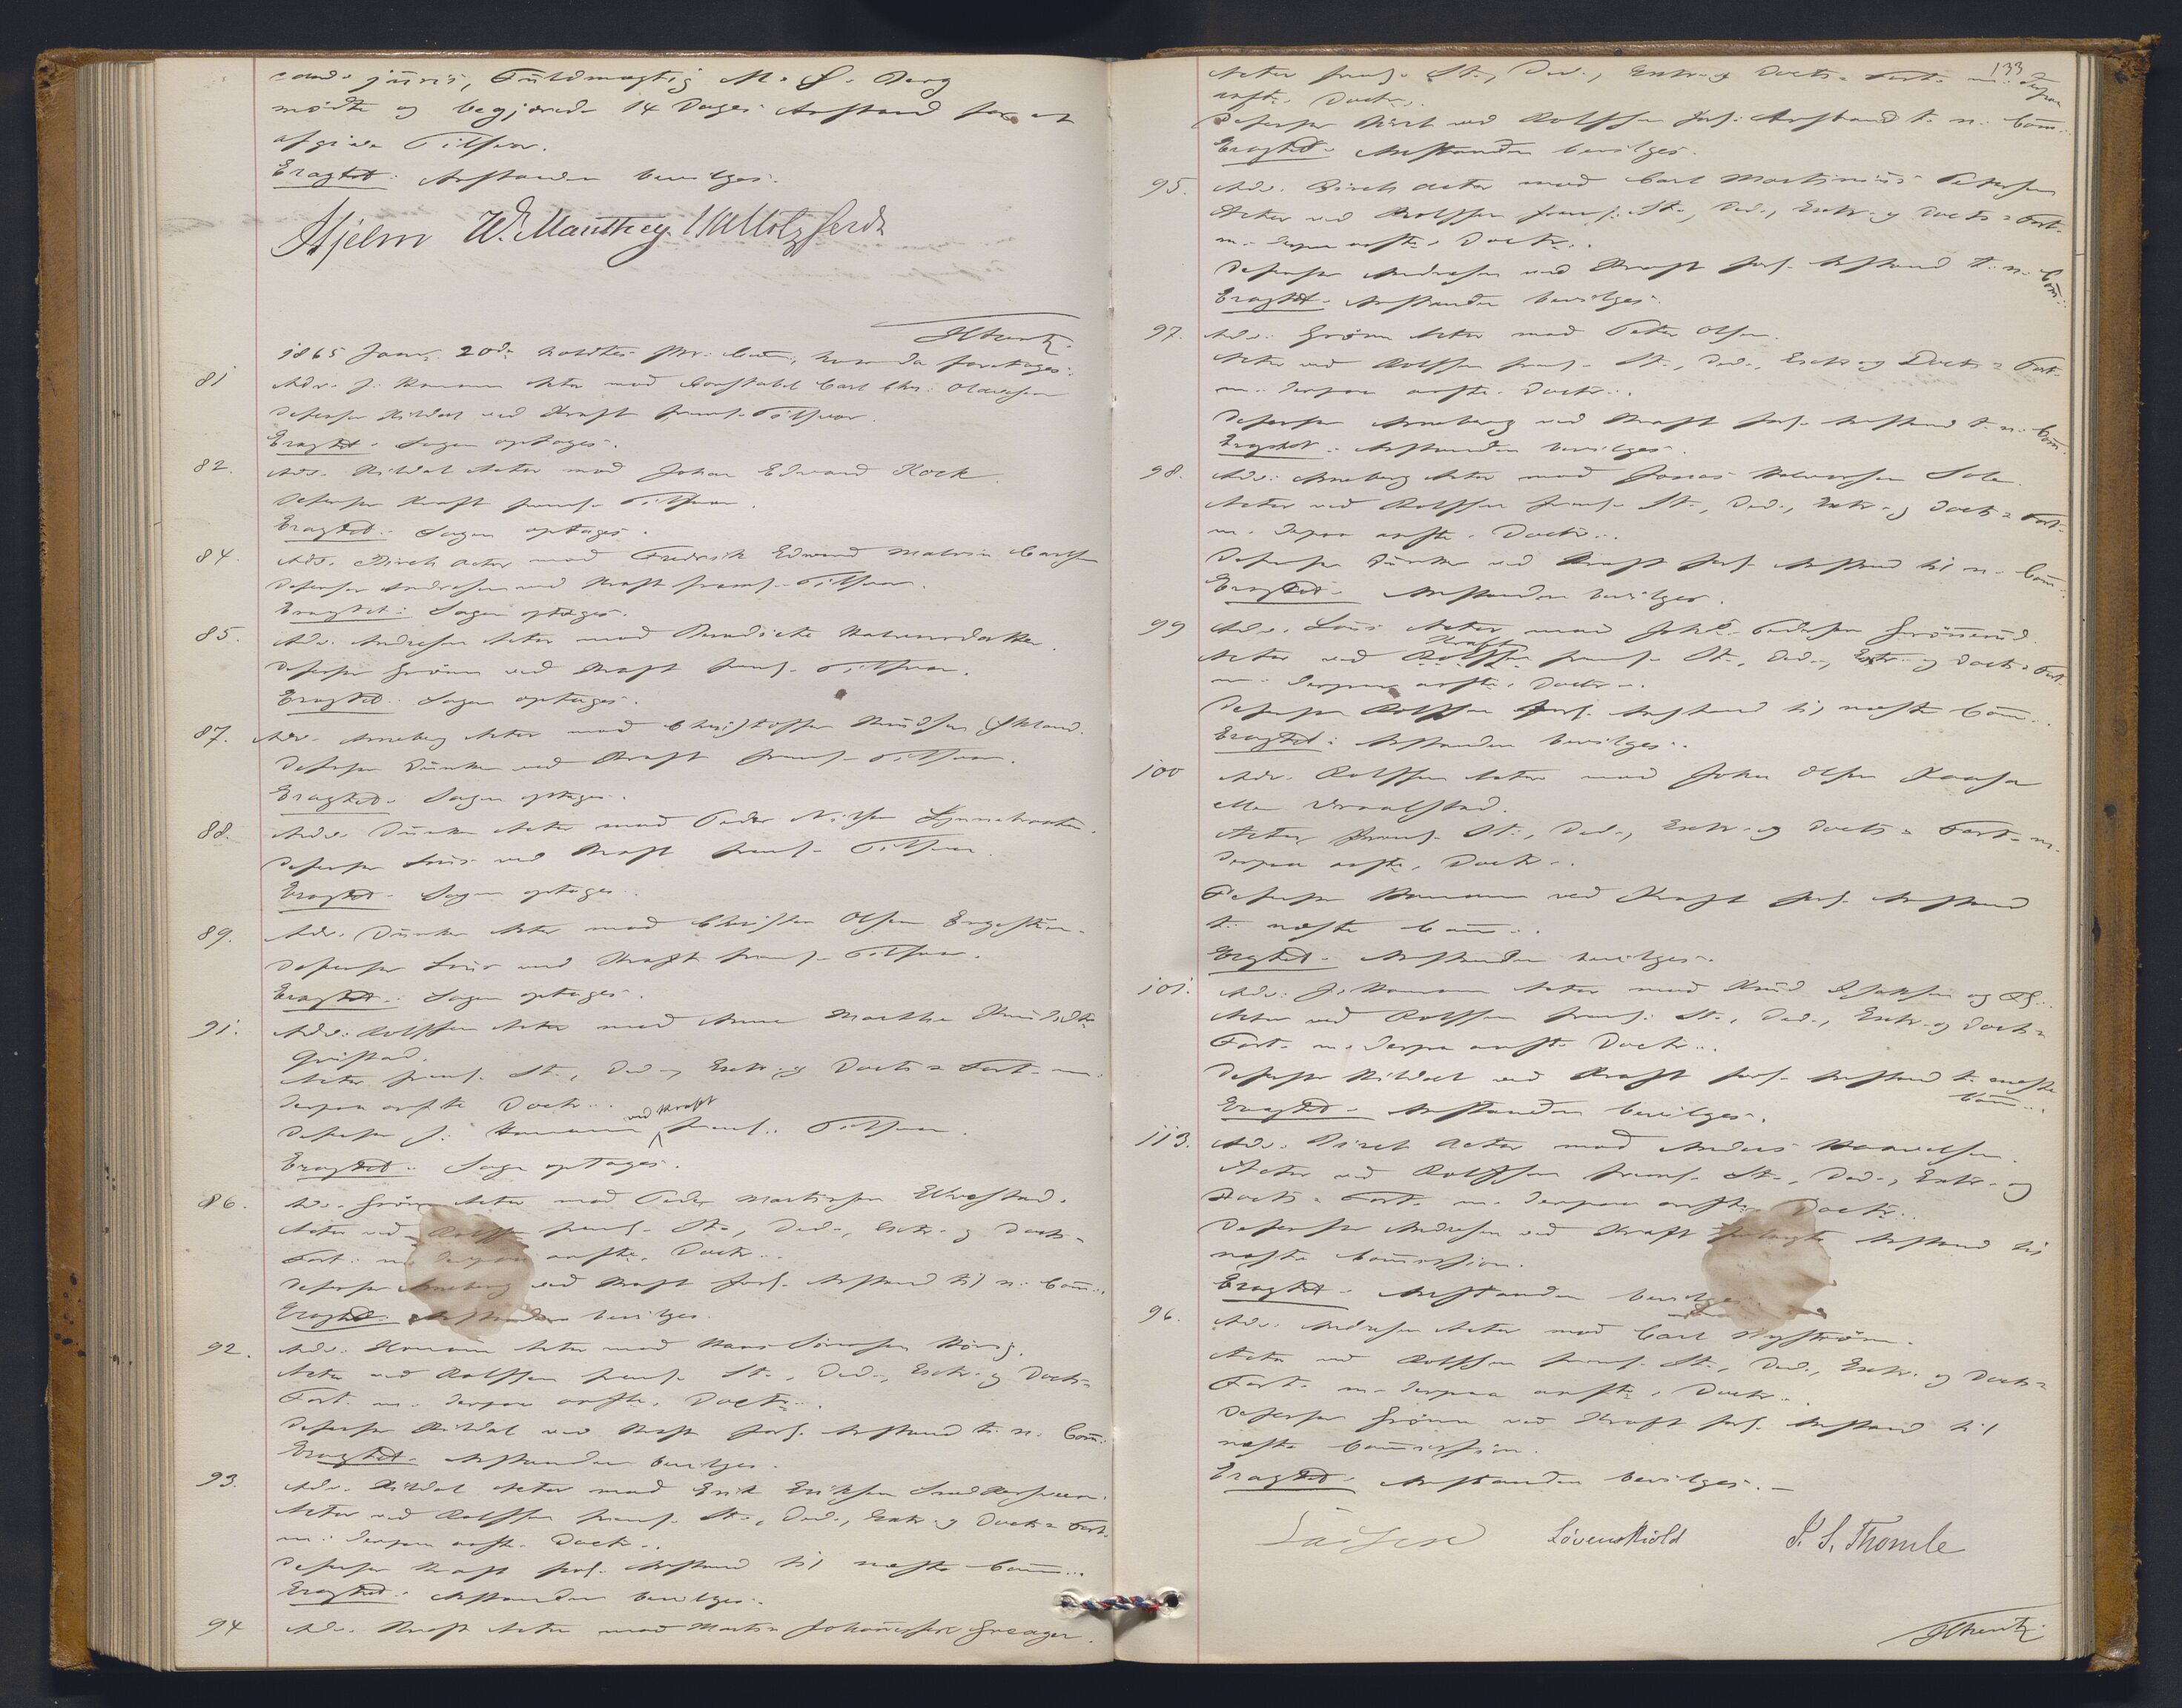 cand. juris, Fuldmægtig M. S. Berg
mødte og begjærede 14 Dages Anstand for at
afgive Tilsvar.
Eragtet: Anstanden bevilges.
Hjelm W. Manthey
1865 Januar 20de holdtes Pr. Com., hvorda foretoges:
81 Adv. J. Homann Actor mod Constabel Carl Chr. Olaussen
Defensor Hildal ved Kraft freml. Tilsvar.
Eragtet: Sagen optages.
82. Adv. Hildal Actor mod Johan Edvard Kock.
Defensor Kraft freml. Tilsvar.
Eragtet: Sagen optages.
84. Adv. Birch Actor mod Fredrik Edvard Malvin Carlsen
Defensor Andresen ved Kraft freml. Tilsvar.
Eragtet: Sagen optages.
85. Adv. Andresen Actor mod Benedicte
Defensor Grönn ved Kraft freml. Tilsvar.
Eragtet: Sagen optages.
87. Adv. Anneberg Actor mod Christoffer Knudsen
Defensor Dunker ved Kraft freml. Tilsvar.
Eragtet: Sagen optages.
88. Adv. Dunker Actor mod Peder Nilsen
Defensor Lous ved Kraft freml. Tilsvar.
Eragtet: Sagen optages.
89. Adv. Dunker Actor mod Christen Olsen
Defensor Lous ved Kraft freml. Tilsvar.
Eragtet: Sagen optages.
91. Adv. Rolfsen Actor mod Anne Marthe
Actor freml. St., Ded., Extr. og Doct. Fort. m.
derpaa anfte. Doctr.
Defensor J. Homann ved Kraft freml. Tilsvar.
Eragtet: Sagen optages.
86. Adv. Grönn Actor mod Peder Martinsen
Actor ved Rolfsen freml. St., Ded., Extr. og Doct.
Fort. m. derpaa anfte. Doctr.
Defensor Anneberg ved Kraft forl. Anstand til n. Com.
Eragtet: Anstanden bevilges.
92. Adv. Homann Actor mod Hans
Actor ved Rolfsen freml. St., Ded., Extr. og Doct.
Fort. m. derpaa anfte. Doctr.
Defensor Hildal ved Kraft forl. Anstand t. n. Com.
Eragtet: Anstanden bevilges.
93. Adv. Hildal Actor mod Erik Eriksen
Actor ved Rolfsen freml. St., Ded., Extr. og Doct. Fort.
m. derpaa anfte. Doctr.
Defensor Kraft forl. Anstand til næste Com.
Eragtet: Anstanden bevilges.
94 Adv. Kraft Actor mod Martin Johannessen
133
Actor freml. St., Ded., Extr. og Doct. Fort. m. derpaa
anfte. Doctr.
Defensor Birch ved Rolfsen forl. Anstand t. n. Com.
Eragtet: Anstanden bevilges.
95. Adv. Birch Actor mod Carl Martinius Petersen
Actor ved Rolfsen freml. St., Ded., Extr. og Doct. Fort.
m. derpaa anfte. Doctr.
Defensor Andresen ved Kraft forl. Anstand t. n. Com.
Eragtet: Anstanden bevilges.
97. Adv. Grönn Actor mod Peter Olsen.
Actor ved Rolfsen freml. St., Ded., Extr. og Doct. Fort.
m. derpaa anfte. Doctr.
Defensor Anneberg ved Kraft forl. Anstand t. n. Com.
Eragtet: Anstanden bevilges.
98. Adv. Anneberg Actor mod Jonas Halvorsen
Actor ved Rolfsen freml. St., Ded., Extr. og Doct. Fort.
m. derpaa anfte. Doctr.
Defensor Dunker ved Kraft forl. Anstand til n. Com.
Eragtet: Anstanden bevilges.
99 Adv. Lous Actor mod
Actor ved Kraft freml. St., Ded., Extr. og Doct. Fort.
m. derpaa anfte. Doctr.
Defensor Rolfsen forl. Anstand til næste Com.
Eragtet: Anstanden bevilges.
100 Adv. Rolfsen Actor mod Johan Olsen
eller
Actor freml. St., Ded., Extr. og Doct. Fort. m.
derpaa anfte. Doctr.
Defensor Homann ved Kraft forl. Anstand
t. næste Com.
Eragtet: Anstanden bevilges.
101. Adv. J. Homann Actor mod Knud Isaksen og Fl.
Actor ved Rolfsen freml. St., Ded., Extr. og Doct.
Fort. m. derpaa anfte. Doctr.
Defensor Hildal ved Kraft forl. Anstand t. næste
Com.
Eragtet: Anstanden bevilges.
113. Adv. Birch Actor mod Anders
Actor ved Rolfsen freml. St., Ded., Extr. og
Doct. Fort. m. derpaa anfte. Doctr.
Defensor Andresen ved Kraft forlangte Anstand til
næste Commission.
Eragtet: Anstanden bevilges.
96. Adv. Andresen Actor mod Carl Nyström.
Actor ved Rolfsen freml. St., Ded., Extr. og Doct.
Fort. m. derpaa anfte. Doctr.
Defensor Grönn ved Kraft forl. Anstand til
næste Commission.
Eragtet: Anstanden bevilges.
Lövenskiold P. S. Thomle